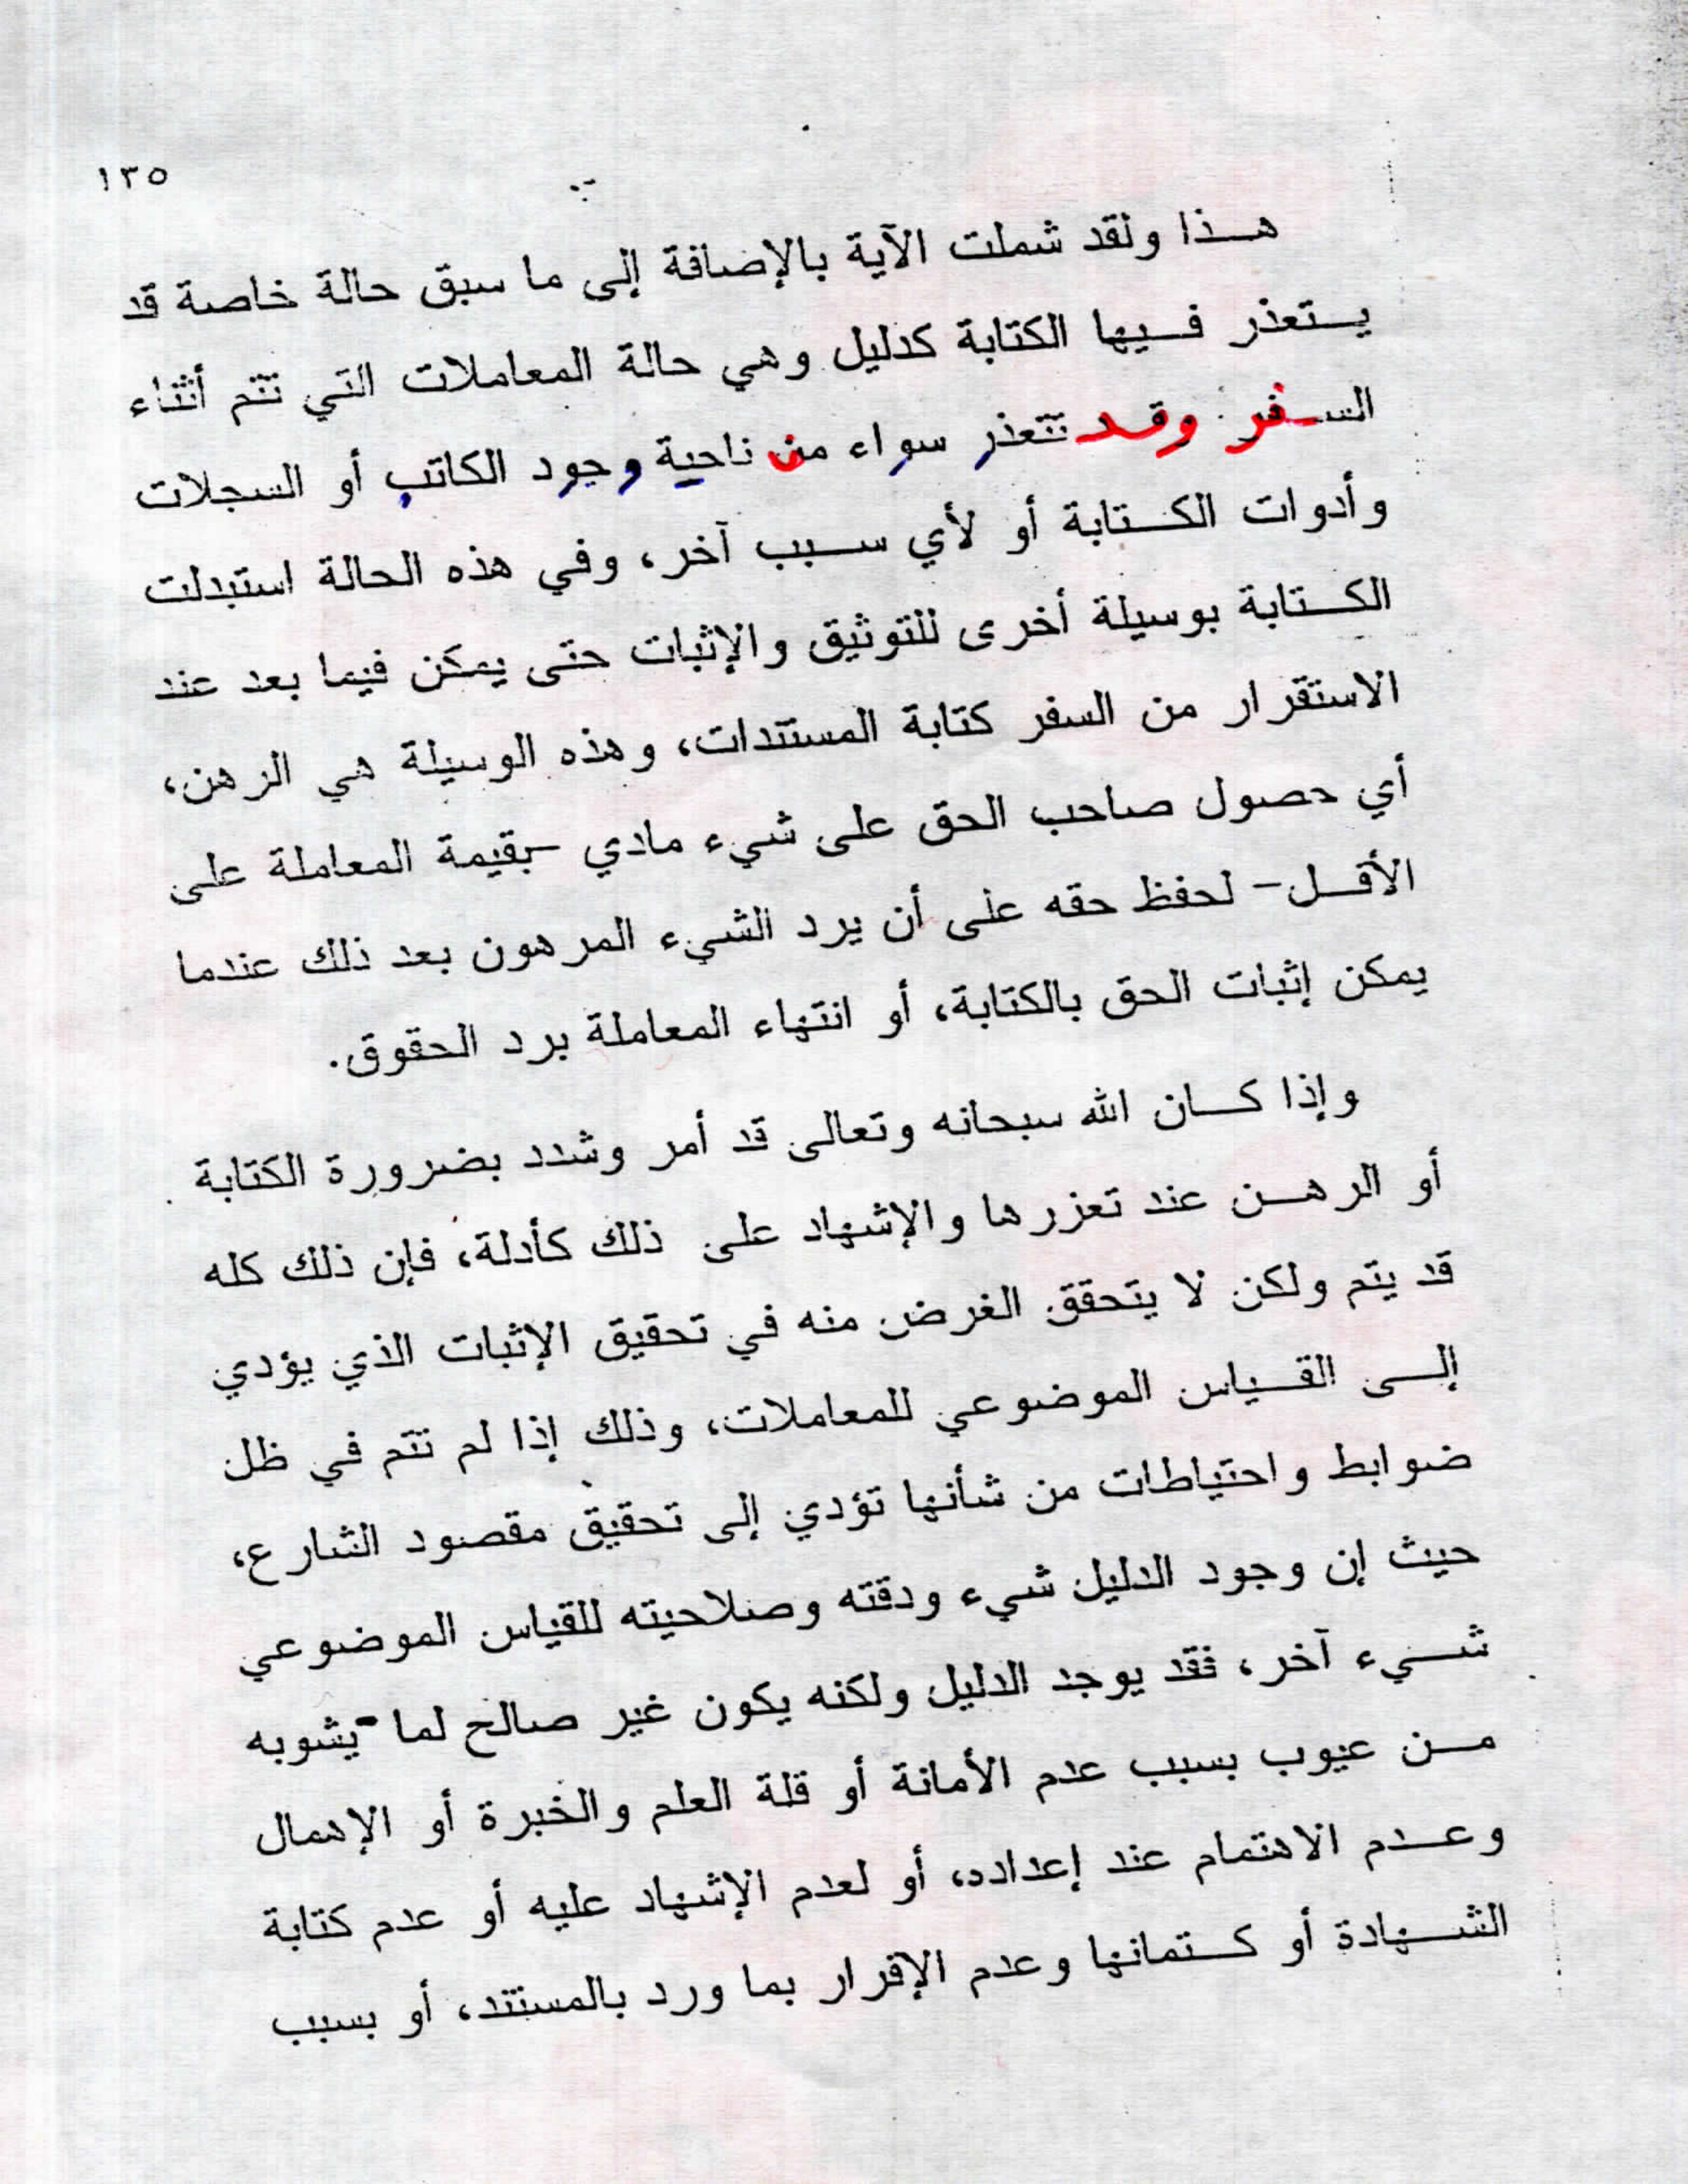 ١٣٥
هذا ولقد شملت الآية بالإضافة إلى ما سبق حالة خاصة قد
يستعذر فيها الكتابة كدليل وهي حالة المعاملات التي تتم أثناء
السفر وقد تتعذر سواء من ناحية وجود الكاتب أو السجلات
وأدوات الكتابة أو لأي سبب آخر، وفي هذه الحالة استبدلت
الكتابة بوسيلة أخرى للتوثيق والإثبات حتى يمكن فيما بعد عند
الاستقرار من السفر كتابة المستندات، وهذه الوسيلة هي الرهن،
أي حصول صاحب الحق على شيء مادي -بقيمة المعاملة على
الأقل- لحفظ حقه على أن يرد الشيء المرهون بعد ذلك عندما
يمكن إثبات الحق بالكتابة، أو انتهاء المعاملة برد الحقوق.
وإذا كان الله سبحانه وتعالى قد أمر وشدد بضرورة الكتابة
أو الرهن عند تعزرها والإشهاد على ذلك كأدلة، فإن ذلك كله
قد يتم ولكن لا يتحقق الغرض منه في تحقيق الإثبات الذي يؤدي
إلى القياس الموضوعي للمعاملات، وذلك إذا لم تتم في ظل
ضوابط واحتياطات من شأنها تؤدي إلى تحقيق مقصود الشارع،
حيث إن وجود الدليل شيء ودقته وصلاحيته للقياس الموضوعي
شيء آخر، فقد يوجد الدليل ولكنه يكون غير صالح لما يشوبه
من عيوب بسبب عدم الأمانة أو قلة العلم والخبرة أو الإهمال
وعدم الاهتمام عند إعداده، أو لعدم الإشهاد عليه أو عدم كتابة
الشهادة أو كتمانها وعدم الإقرار بما ورد بالمستند، أو بسبب